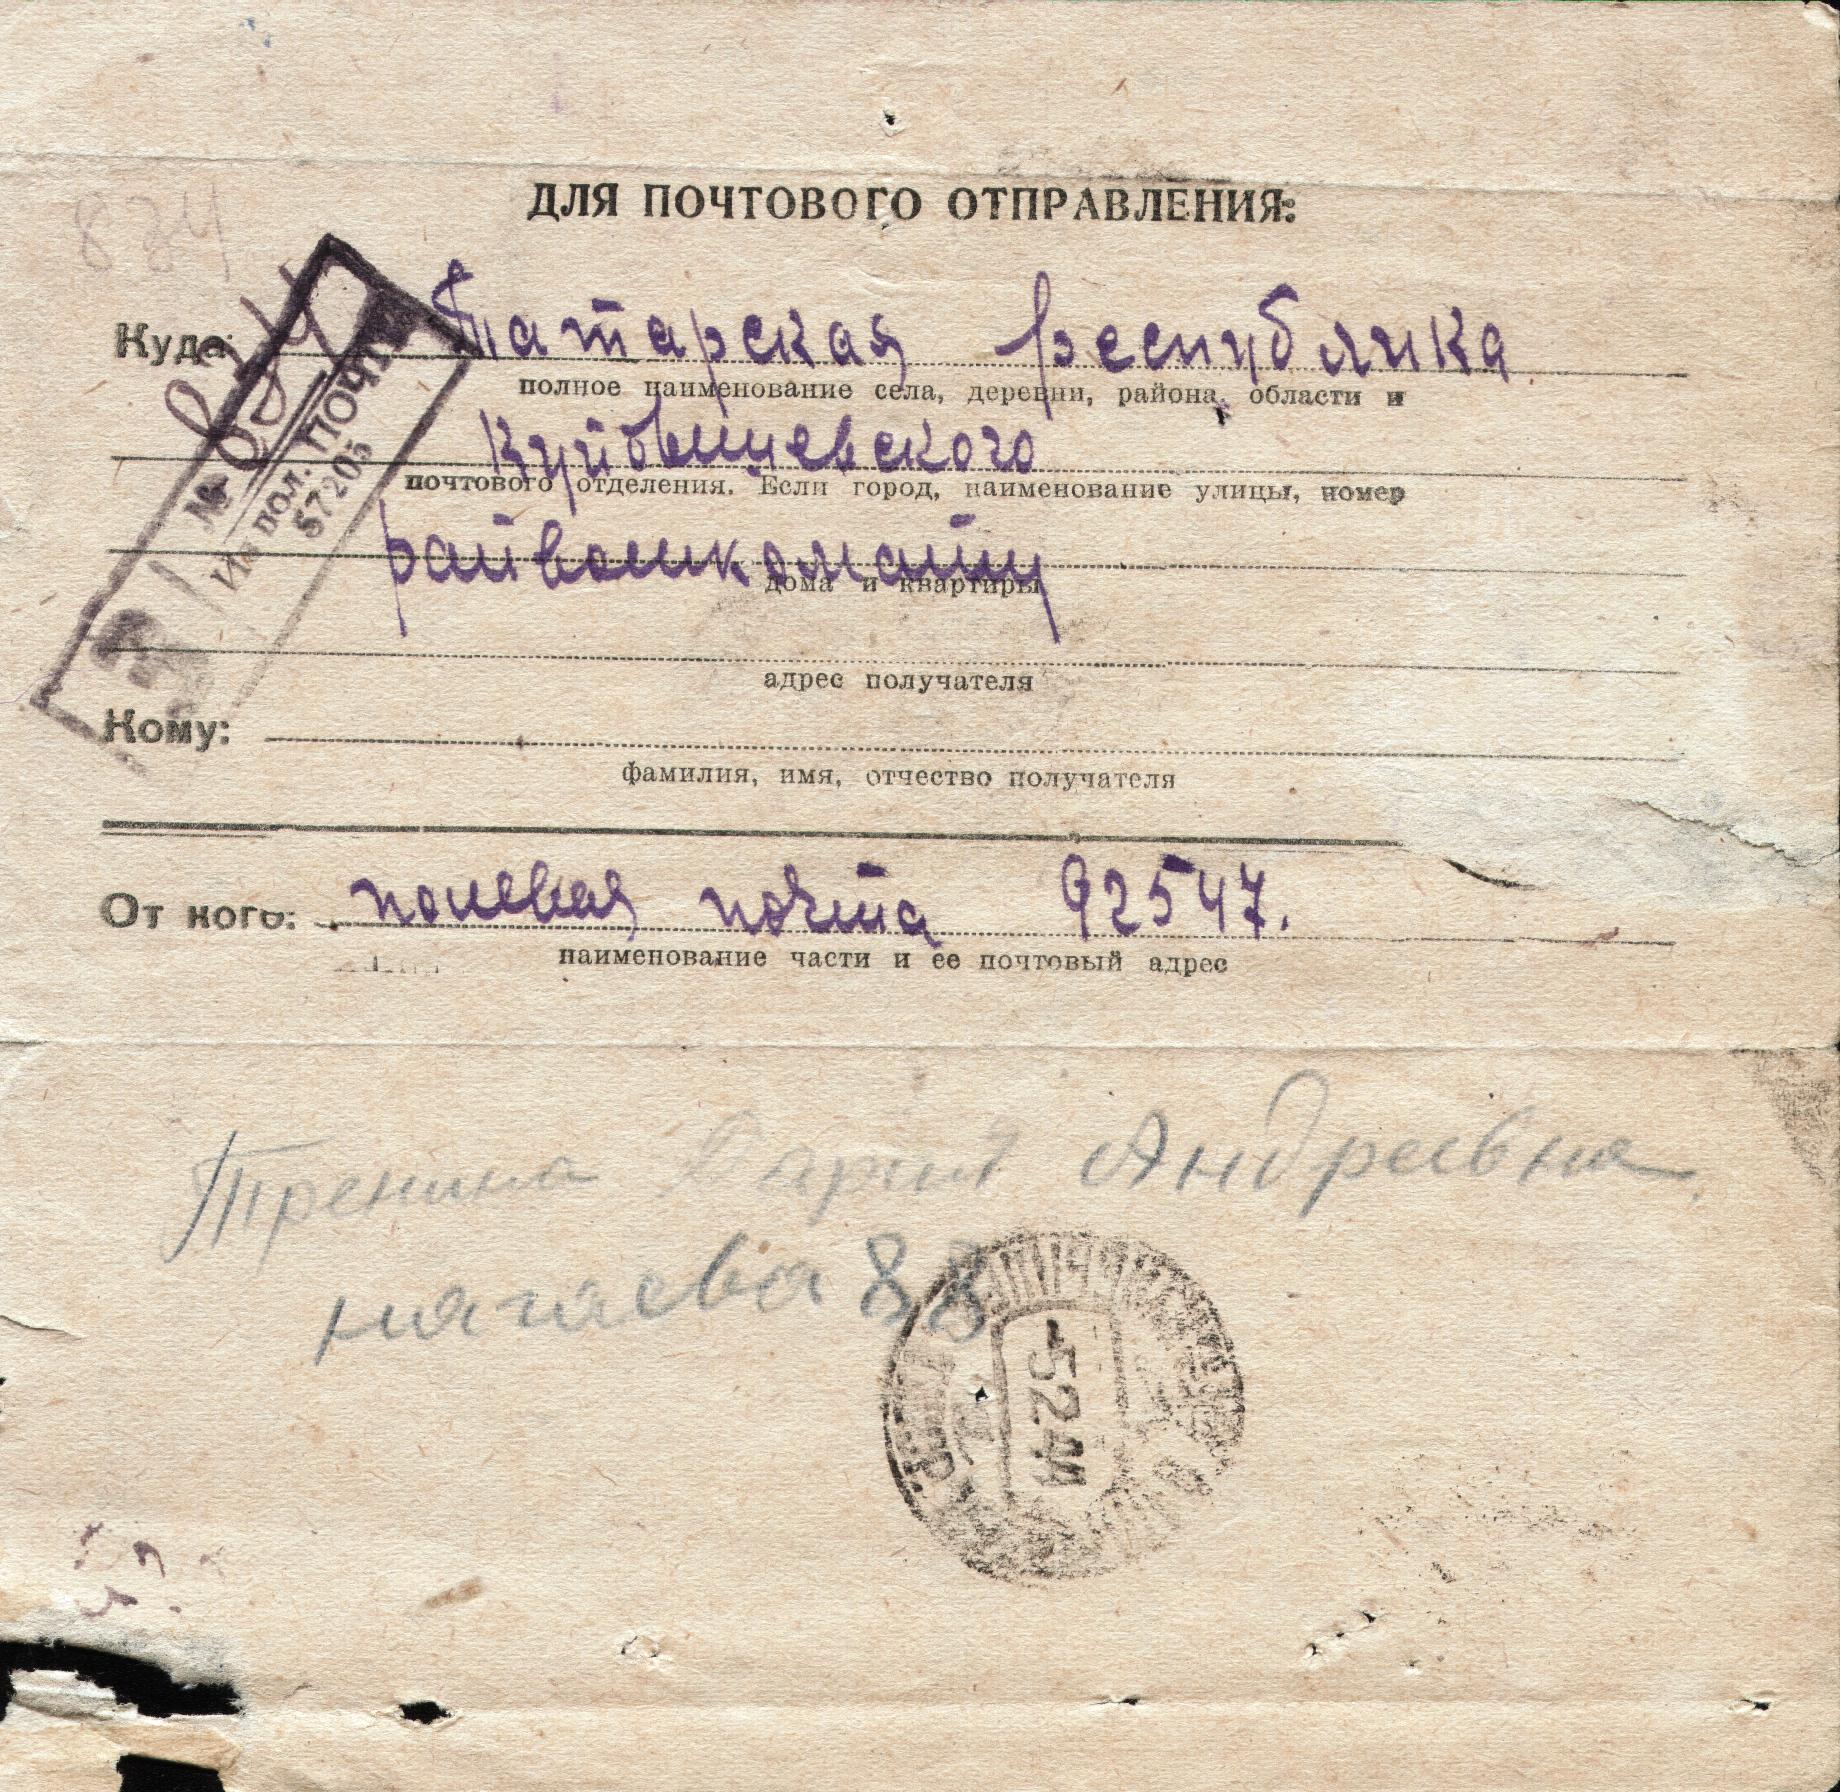 834
ДЛЯ ПОЧТОВОГО ОТПРАВЛЕНИЯ:
Куда: Татарская республика
полное наименование села, деревни, района, области и
Куйбышевского
почтового отделения. Если город, наименование улицы, номер
райвоенкомату
дома и квартиры
адрес получателя
№ 834
Из пол. ПОЧТЫ
57205
Кому:
фамилия, имя, отчество получателя
От кого: полевая почта 92547.
наименование части и ее почтовый адрес
Тренина Андреевна
нагаева 88
-5244